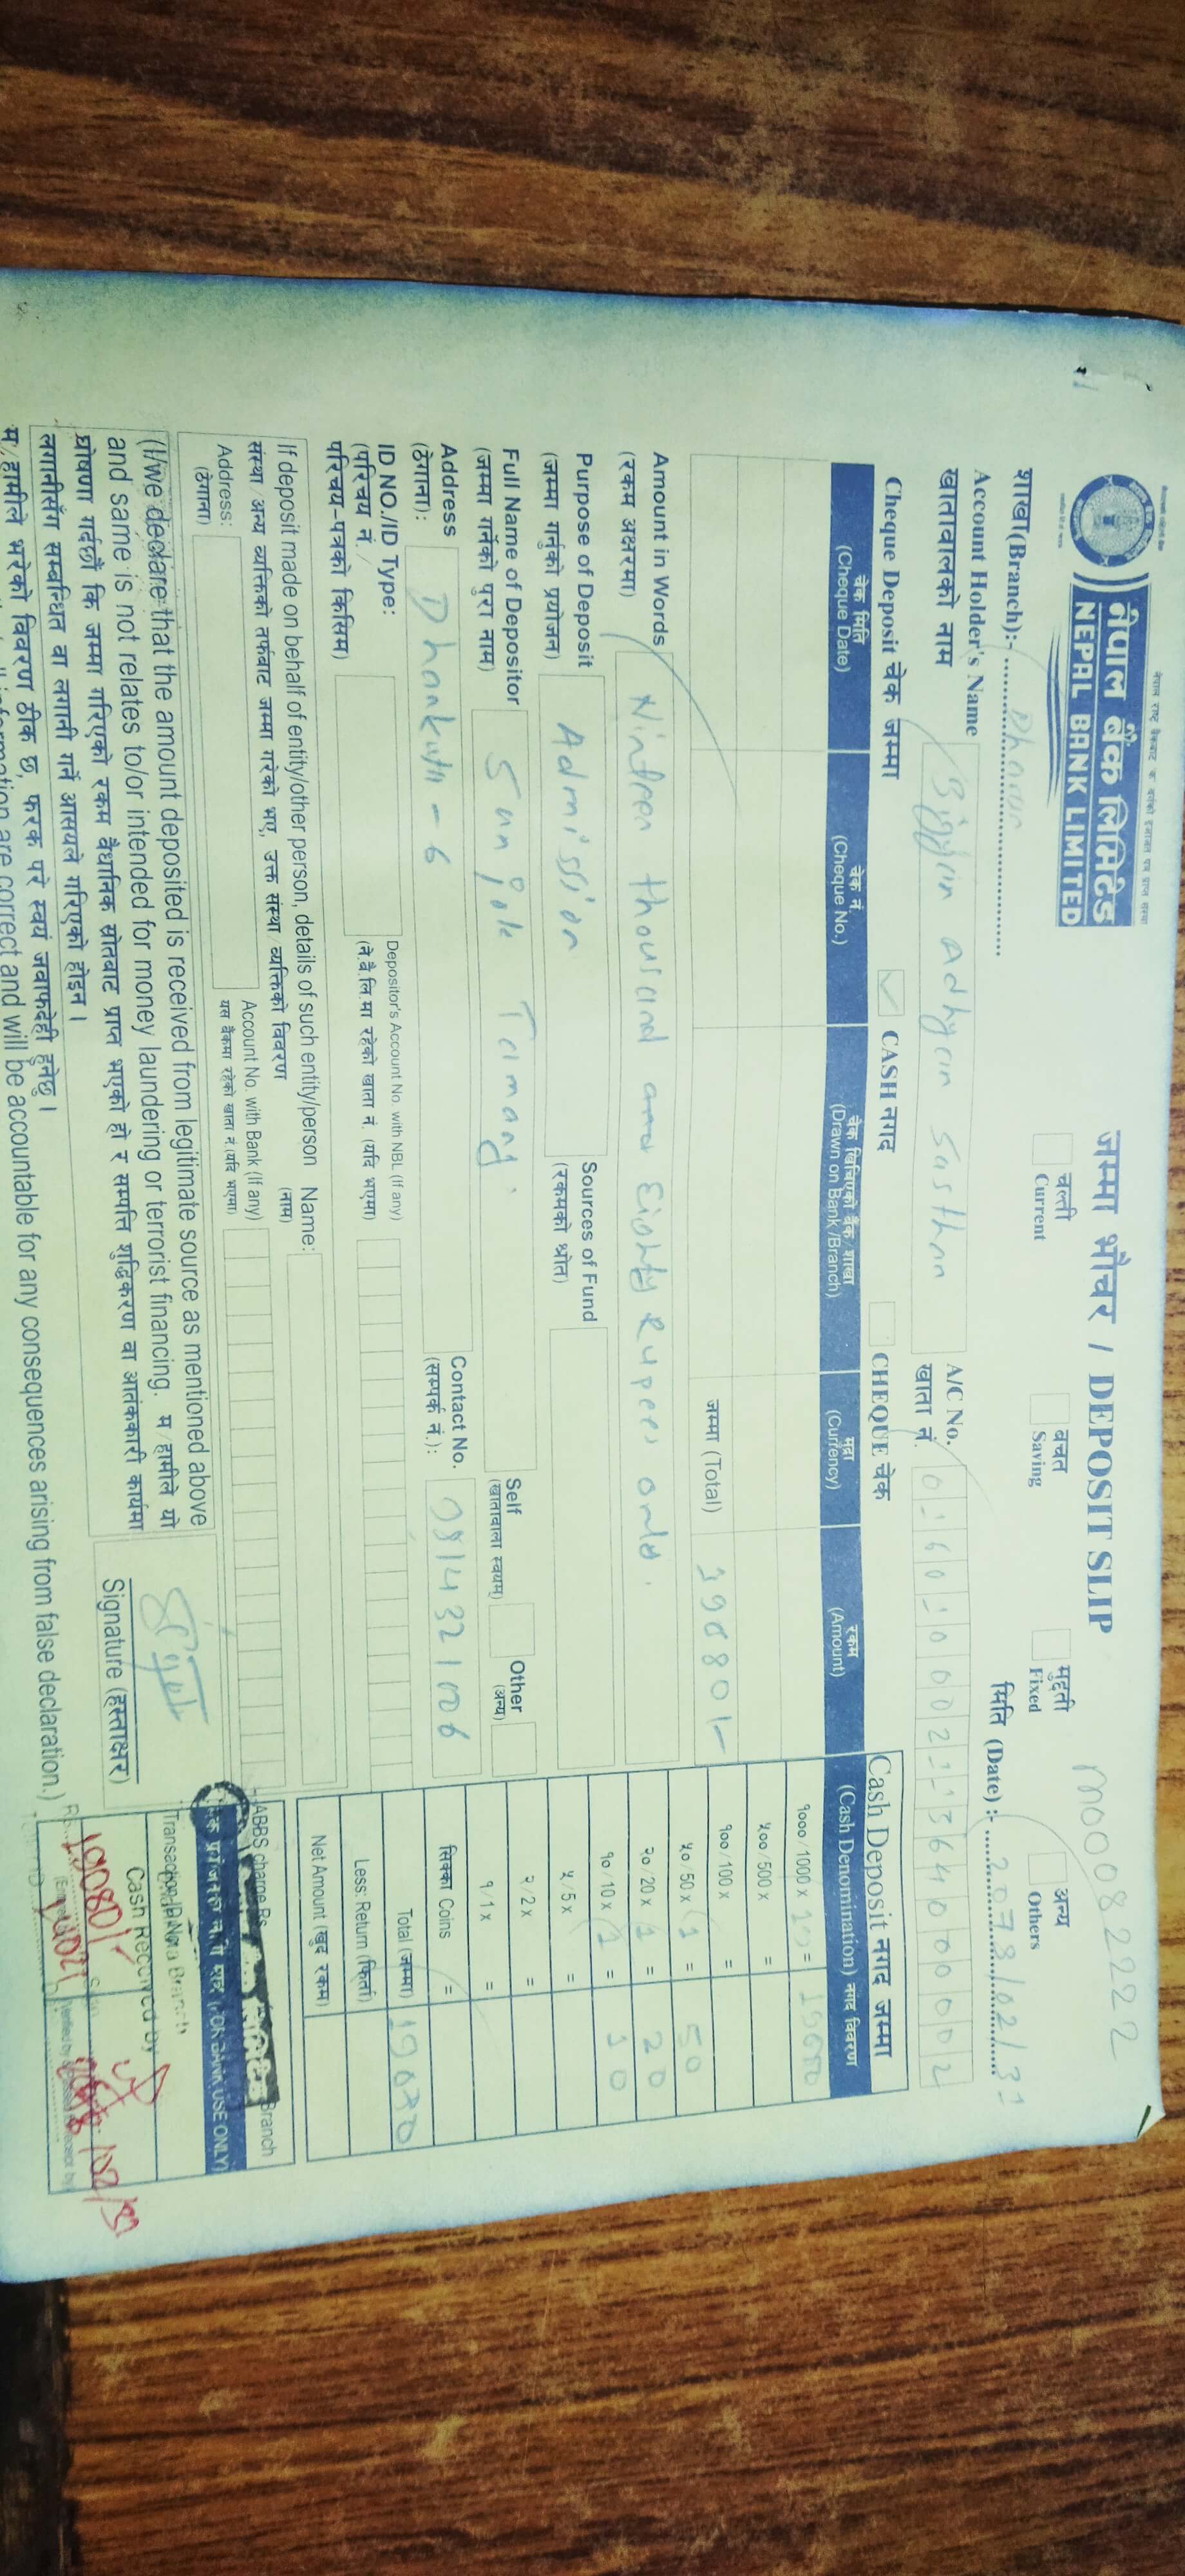 नेपाल बैंक लिमिटेड
NEPAL BANK LIMITED
जम्मा भौचर / DEPOSIT SLIP
M00082222
शाखा(Branch):- Dharan
चल्ती
Current
बचत
Saving
मुद्दती
Fixed
अन्य
Others
मिति (Date) :- 2078/02/31
Account Holder's Name
खातावालाको नाम
Adhyan Sasthan
A/C No.
खाता नं.
Cheque Deposit चेक जम्मा
CASH नगद
CHEQUE चेक
Cash Deposit नगद जम्मा
चेक मिति
(Cheque Date)
चेक नं.
(Cheque No.)
चेक खिचिएको बैंक/शाखा
(Drawn on Bank /Branch)
मुद्रा
(Currency)
रकम
(Amount)
(Cash Denomination) नगद विवरण
१०००/1000 x 19 = 19000
५००/500 x =
१००/100 x =
५०/50 x 1 = 50
२०/20 x 1 = 20
१०/10 x 1 = 10
५/5 x =
२/2 x =
१/1 x =
सिक्का Coins =
Total (जम्मा) 19080
Less: Return (फिर्ता)
Net Amount (खुद रकम)
जम्मा (Total) 19080/-
Amount in Words
(रकम अक्षरमा)
Ninteen thousand and Eighty Rupees only.
Purpose of Deposit
(जम्मा गर्नुको प्रयोजन)
Admission
Sources of Fund
(रकमको श्रोत)
Full Name of Depositor
(जम्मा गर्नेको पुरा नाम)
Tamang
Self
(खातावाला स्वयम्)
Other
(अन्य)
Address
(ठेगाना):
Dhankuta - 6
Contact No.
(सम्पर्क नं.):
ID NO./ID Type:
(परिचय नं./
परिचय-पत्रको किसिम)
Depositor's Account No. with NBL (If any)
(ने.बै.लि.मा रहेको खाता नं. (यदि भएमा)
If deposit made on behalf of entity/other person, details of such entity/person
संस्था/अन्य व्यक्तिको तर्फबाट जम्मा गरेको भए, उक्त संस्था/व्यक्तिको विवरण
Name:
(नाम)
Address:
(ठेगाना)
Account No. with Bank (If any)
यस बैंकमा रहेको खाता नं.(यदि भएमा)
ABBS charge Rs.
Branch
(FOR BANK USE ONLY)
(I/we declare that the amount deposited is received from legitimate source as mentioned above
and same is not relates to/or intended for money laundering or terrorist financing. म/हामीले यो
घोषणा गर्दछौं कि जम्मा गरिएको रकम वैधानिक स्रोतबाट प्राप्त भएको हो र सम्पत्ति शुद्धिकरण वा आतंककारी कार्यमा
लगानीसँग सम्बन्धित वा लगानी गर्ने आसयले गरिएको होइन।
म/हामीले भरेको विवरण ठीक छ, फरक परे स्वयं जवाफदेही हुनेछु।
correct and will be accountable for any consequences arising from false declaration.)
Signature (हस्ताक्षर)
Cash Received by
19080/-